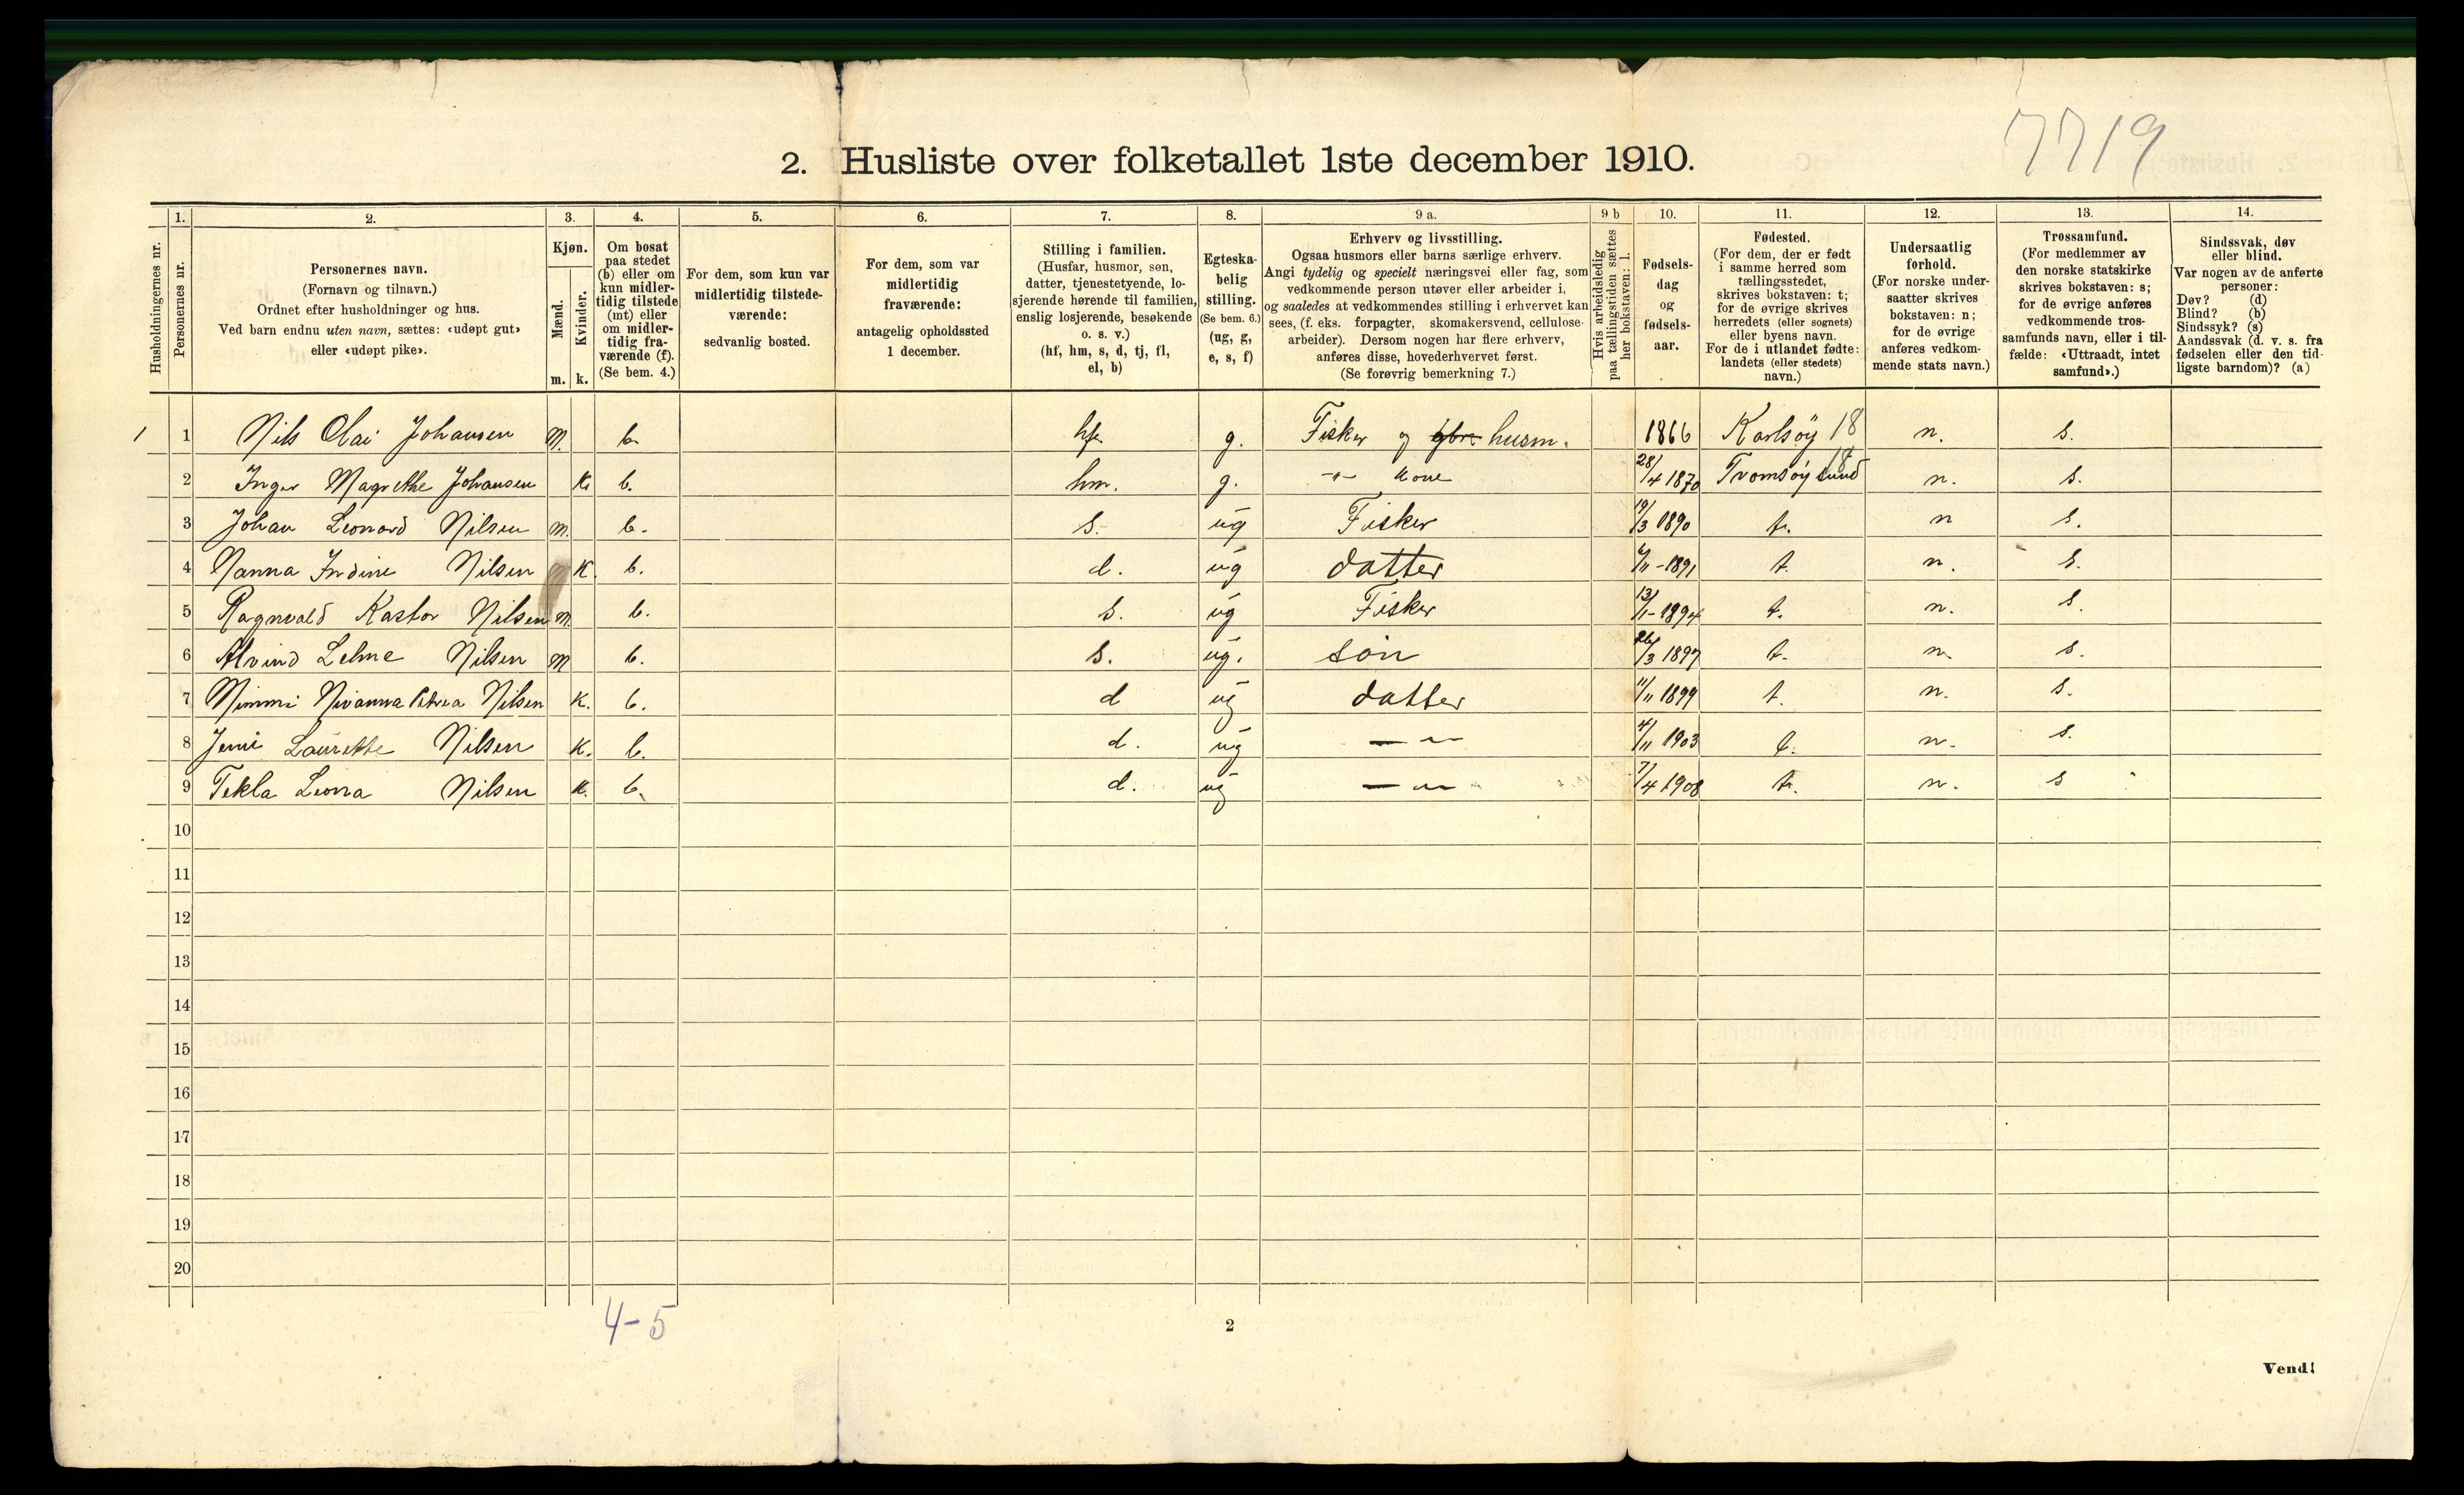 7719
2. Husliste over folketallet 1ste december 1910.
Husholdningernes nr.
1. Personernes nr.
2. Personernes navn.
(Fornavn og tilnavn.)
Ordnet efter husholdninger og hus.
Ved barn endnu uten navn, sættes: «udøpt gut»
eller «udøpt pike».
3. Kjøn.
Mænd. m.
Kvinder. k.
4. Om bosat
paa stedet
(b) eller om
kun midler-
tidig tilstede
(mt) eller
om midler-
tidig fra-
værende (f).
(Se bem. 4.)
5. For dem, som kun var
midlertidig tilstede-
værende:
sedvanlig bosted.
6. For dem, som var
midlertidig
fraværende:
antagelig opholdssted
1 december.
7. Stilling i familien.
(Husfar, husmor, søn,
datter, tjenestetyende, lo-
sjerende hørende til familien,
enslig losjerende, besøkende
o. s. v.)
(hf, hm, s, d, tj, fl,
el, b)
8. Egteska-
belig
stilling.
(Se bem. 6.)
(ug, g,
e, s, f)
9 a. Erhverv og livsstilling.
Ogsaa husmors eller barns særlige erhverv.
Angi tydelig og specielt næringsvei eller fag, som
vedkommende person utøver eller arbeider i,
og saaledes at vedkommendes stilling i erhvervet kan
sees, (f. eks. forpagter, skomakersvend, cellulose-
arbeider). Dersom nogen har flere erhverv,
anføres disse, hovederhvervet først.
(Se forøvrig bemerkning 7.)
9 b Hvis arbeidsledig
paa tællingstiden sættes
her bokstaven: l.
10. Fødsels-
dag
og
fødsels-
aar.
11. Fødested.
(For dem, der er født
i samme herred som
tællingsstedet,
skrives bokstaven: t;
for de øvrige skrives
herredets (eller sognets)
eller byens navn.
For de i utlandet fødte:
landets (eller stedets)
navn.)
12. Undersaatlig
forhold.
(For norske under-
saatter skrives
bokstaven: n;
for de øvrige
anføres vedkom-
mende stats navn.)
13. Trossamfund.
(For medlemmer av
den norske statskirke
skrives bokstaven: s;
for de øvrige anføres
vedkommende tros-
samfunds navn, eller i til-
fælde: «Uttraadt, intet
samfund».)
14. Sindssvak, døv
eller blind.
Var nogen av de anførte
personer:
Døv? (d)
Blind? (b)
Sindssyk? (s)
Aandssvak (d. v. s. fra
fødselen eller den tid-
ligste barndom)? (a)
1 1 Nils Olai Johansen m. b. hf. g. Fisker og husm. 1866 Karlsöy 18 n. s.
2 Inger Magrethe Johansen K. b. hm. g. -"- Kone 28/4 1870 Tromsöysund 18 n. s.
3 Johan Leonard Nilsen m. b. s. ug Fisker 19/3 1890 t. n s.
4 Nanna Indine Nilsen K. b. d. ug datter 6/11-1891 t. n. s.
5 Ragnvald Kastor Nilsen m. b. s. ug Fisker 13/1-1894 t. n. s.
6 Alvind Nilsen m b. s. ug. sön 26/3 1897 t. n. s.
7 Mimmi Nivanna Petrea Nilsen K. b. d ug datter 11/11 1899 t. n. s.
8 Jenni Laurette Nilsen K. b. d. ug — "— 4/11 1903 t. n. s.
9 Tekla Leona Nilsen K. b. d. ug — "— 7/4 1908 t. n. s
10
11
12
13
14
15
16
17
18
19
20
4-5
2
Vend!